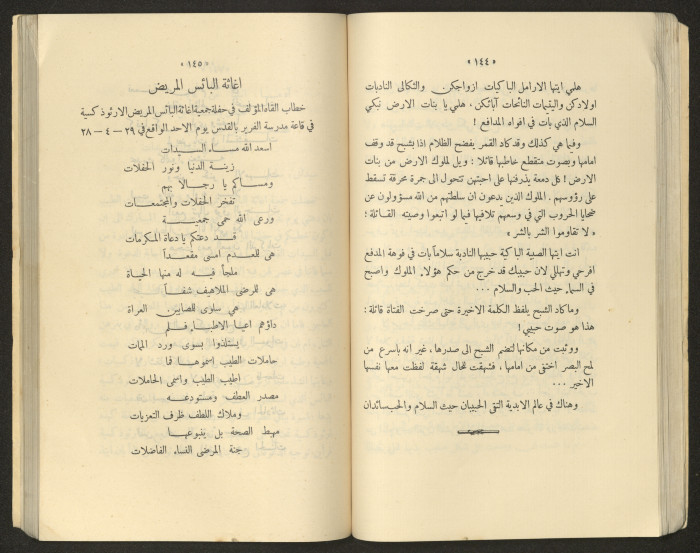 «١٤٤»
هلمي ايتها الارامل الباكيات ازواجكن والثكالى النادبات
اولادكن واليتيمات النائحات آبائكن ، هلمي يا بنات الارض نبكي
السلام الذي بات في افواه المدافع !
وفيما هي كذلك وقد كاد القمر يفضح الظلام اذا بشبح قد وقف
امامها وبصوت متقطع خاطبها قائلا : ويل لملوك الارض من بنات
الارض ! كل دمعة يذرفنها على احبتهن تتحول الى جمرة محرقة تسقط
على رؤوسهم . الملوك الذين يدعون ان سلطتهم من الله مسؤولون عن
ضحايا الحروب التي في وسعهم تلافيها فيما لو اتبعوا وصيته القائلة :
« لا تقاوموا الشر بالشر »
انت ايتها الصبية الباكية حبيبها النادبة سلاماً بات في فوهة المدفع
افرحي وتهللي لان حبيبك قد خرج من حكم هؤلاء الملوك واصبح
في السماء حيث الحب والسلام ...
وما كاد الشبح يلفظ الكلمة الاخيرة حتى صرخت الفتاة قائلة :
هذا هو صوت حبيبي !
ووثبت من مكانها لتضم الشبح الى صدرها ، غير انه باسرع من
لمح البصر اختفى من امامها ، فشهقت للحال شهقة لفظت معها نفسها
الاخير ...
وهناك في عالم الابدية التقى الحبيبان حيث السلام والحب سائدان
«١٤٥»
اغاثة البائس المريض
خطاب القاه المؤلف في حفلة جمعية اغاثة البائس المريض الارثوذكسية
في قاعة مدرسة الفرير بالقدس يوم الاحد الواقع في ٢٩ – ٤ – ٢٨
اسعد الله مساء السيدات
زينة الدنيا ونور الحفلات
ومساكم يا رجالاً بهم
تفخر الحفلات والمجتمعات
ورعى الله حمى جمعية
قد دعتكم يا دعاة المكرمات
هي للمعدم امسى مقعداً
ملجأ فيه له منها الحياة
هي للمرضى الملاهيف شفاً
هي سلوى للمصابين العراة
داؤهم اعيا الاطباء فلم
يستلذوا بسوى ورد الممات
حاملات الطيب اسموها فما
اطيب الطيب واسمى الحاملات
مصدر العطف ومستودعه
وملاك اللطف ظرف التعزيات
مهبط الصحة بل ينبوعها
جنة المرضى النساء الفاضلات